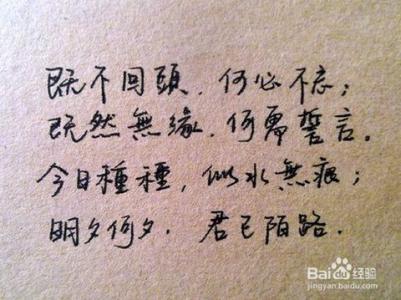 既不回頭，何必不忘；
既然無緣，何需誓言。
今日種種，似水無痕；
明夕何夕．君已陌路．
Baidu经验
jingyan.baidu.com